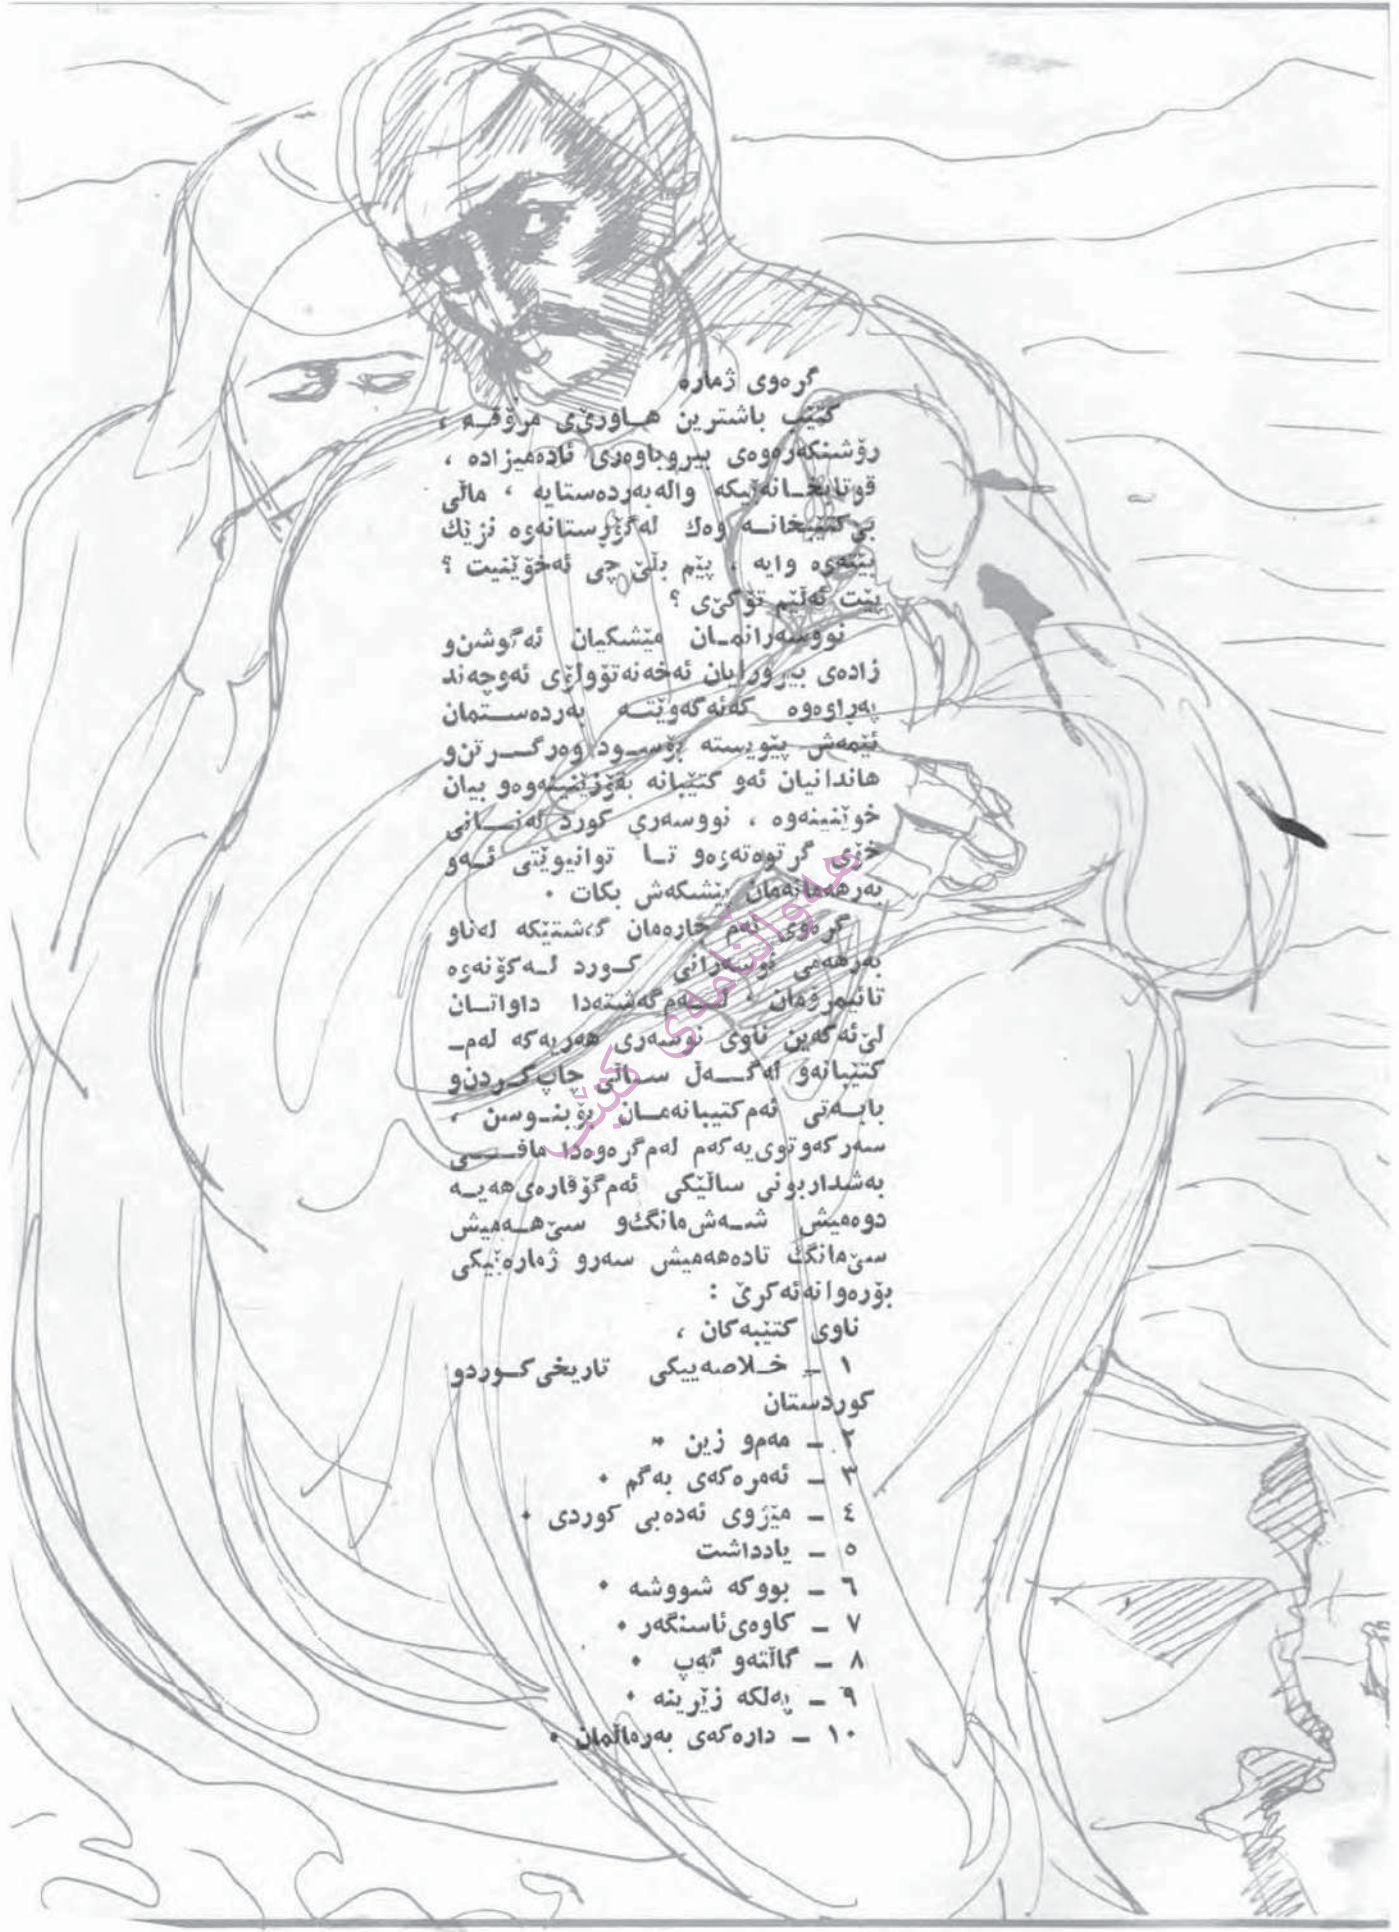 گرەوی ژمارە
کتێب باشترین هـاورێ‌ی مرۆڤـە ،
رۆشنکەرەوەی بیروباوەری ئادەمیزادە ،
قوتابخـانەێیکە والەبەردەستایە ، ماڵی
بێ‌کتێبخانـە وەك لەگۆڕستانەوە نزێك
بێتەوە وایە ، پێم بڵێ‌ چی ئەخۆێنیت ؟
پێت ئەڵێم تۆکێ‌ی ؟
نووسەرانمـان مێشکیان ئەگوشن‌و
زادەی بیرورایان ئەخەنەتۆوتۆی ئەوچەند
پەڕاوەوە کەئەگەوێتـە بەردەسـتمان
ئێمەش پێویستە بۆسـود وەرگـرتن‌و
هاندانیان ئەو کتێبانە بقۆزێنینەوەو بیان
خوێنینەوە ، نووسەری کورد لەنـانی
خۆی گرتوەتەوەو تـا توانیوێتی ئـەو
بەرهەمانەمان پێشکەش بکات ٠
گرەوی ئەم جارەمان گەشتێکە لەناو
بەرهەمی نوسەرانی کـورد لـەکۆنەوە
تائیمرۆمان ، لـەم‌گەشتەدا داواتـان
لێ‌ئەکەین ناوی نوسەری هەریەکە لەم‌ـ
کتێبانەو لەگـەڵ سـاڵی چاپ‌کـردن‌و
بابـەتی ئەم‌کتیبانەمـان بۆبنـوسن ،
سەرکەوتوی‌یەکەم لەم‌گرەوەدا مافـی
بەشداربونی ساڵێکی ئەم‌گۆڤارەی‌هەیـە
دوەمیش شـەش‌مانگ‌و سێ‌هـەمیش
سێ‌مانگ تادەهەمیش سەرو ژمارەێیکی
بۆرەوانەئەکرێ :
ناوی کتێبەکان ،
١ ـ خـلاصەییکی تاریخی‌کـوردو
کوردستان
٢ ـ مەم‌و زین ٠
٣ ـ ئەمرەکەی بەگم ٠
٤ ـ مێژوی ئەدەبی کوردی ٠
٥ ـ یادداشت
٦ ـ بووکە شووشە ٠
٧ ـ کاوەی‌ئاسنگەر ٠
٨ ـ گاڵتەو گەپ ٠
٩ ـ پەلکە زێرینە ٠
١٠ ـ دارەکەی بەرماڵمان ٠
هەواڵنامەی کتێب